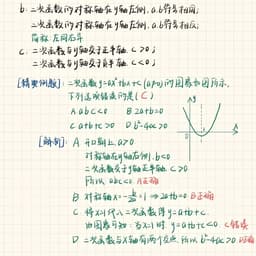 b: 二次函数的对称轴在y轴左侧, a.b符号相同;
二次函数的对称轴在y轴右侧, a.b符号相反;
简称: 左同右异
c: 二次函数与y轴交于正半轴, c>0;
二次函数与y轴交于负半轴, c<0;
[精典例题]: 二次函数y=ax²+bx+c(a≠0)的图象如图所示,
下列选项错误的是( C )
A. abc<0 B. 2a+b=0
C. a+b+c>0 D. b²-4ac>0
y
x
[解析]: A 开口朝上, a>0
对称轴在y轴右侧, b<0
二次函数交于y轴正半轴, c>0
所以, abc<0. A正确
B 对称轴x=-b/2a=1 ⇒ 2a+b=0 B正确
C. 将x=1代入二次函数得 y=a+b+c.
由图象可知: 当x=1时, y=a+b+c<0. C错误
D 二次函数与x轴有两个交点, 所以, b²-4ac>0. D正确